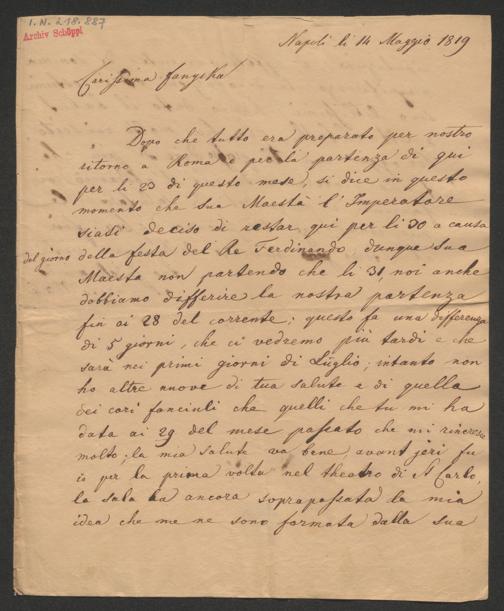 I.N. 218.887
Archiv Schöppl
Napoli li 14 Maggio 1819
Carissima fanyska
Dopo che tutto era preparato per nostro
ritorno a Roma e per la partenza di qui
per li 23 di questo mese, si dice in questo
momento che sua Maestà l'Imperatore
siasi deciso di restar qui per li 30 a causa
del giorno della festa del Re Ferdinando, dunque sua
Maesta non partendo che li 31, noi anche
dobbiamo differire la nostra partenza
fin ai 28 del corrente; questo fa una differenza
di 5 giorni, che ci vedremo più tardi e che
sarà nei primi giorni di Luglio; intanto non
ho altre nuove di tua salute e di quella
dei cari fanciuli che quelli che tu mi ha
data ai 29 del mese passato che mi rincresce
molto; la mia salute va bene, avant jeri fu
io per la prima volta nel theatro di S Carlo,
la sala ha ancora soprapassata la mia
idea che me ne sono formata dalla sua